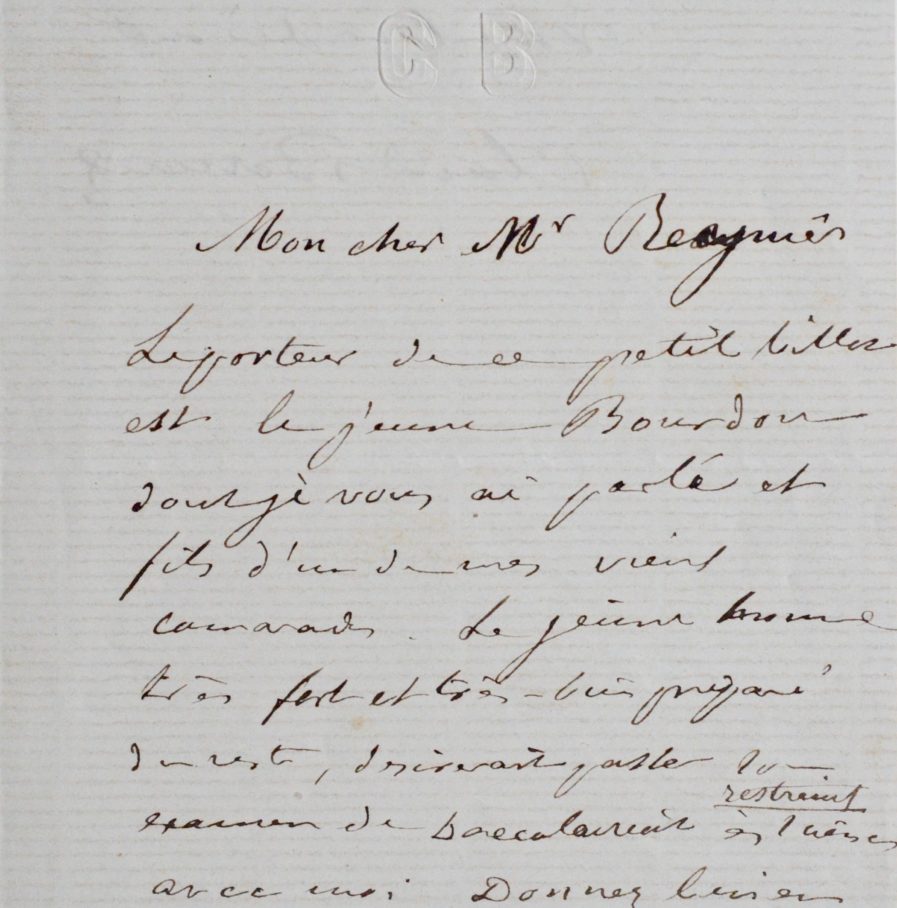 C B
Mon cher Mr Regnier
Le porteur de ce petit billet
est le jeune Bourdon
dont je vous ai parlé et
fils d'un de mes vieux
camarades. Le jeune homme
très fort et très-bien préparé
du reste, desirerait passer son
restreint
examen de baccalauréat ès sciences
avec moi Donnez lui en